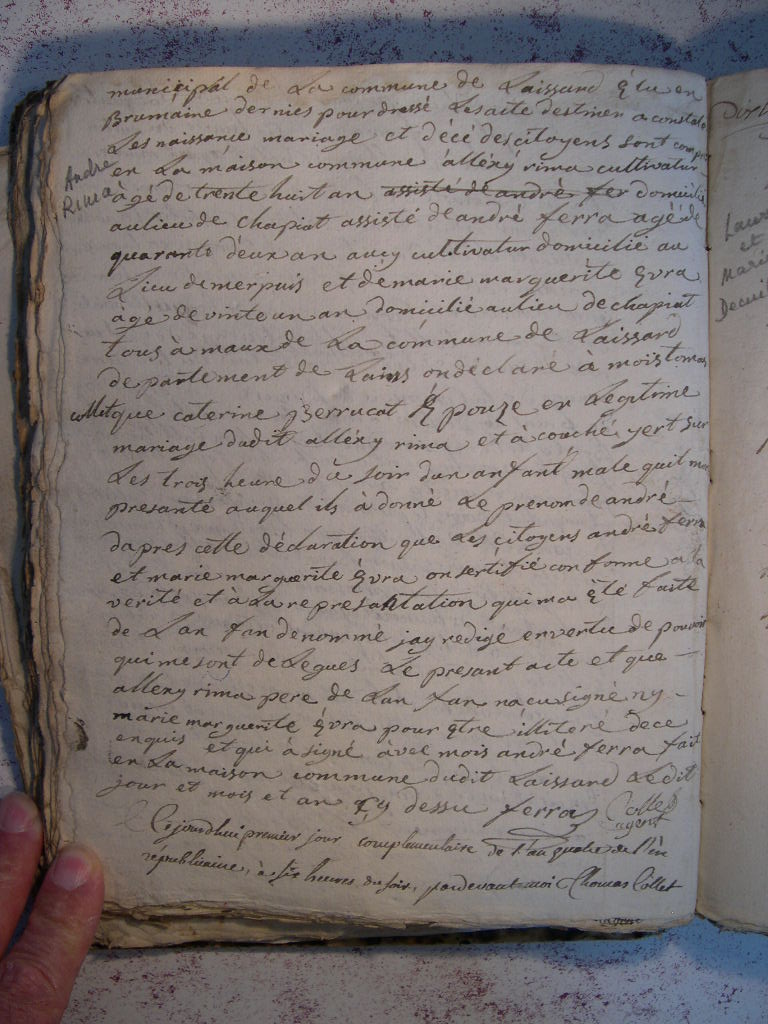 municipal de La commune de Laissard Élu en
Brumaine dernies pour dressé Les aite destinér a constaté
Les naissance mariage et décé des citoyens sont
en La maison commune alléxÿ rima cultivatur
Andre
Rima
àgé de trente huit an assisté de andré fer domicilié
au lieu de chapiat assisté de andré ferra agé de
quarante deux an aucy cultivatur domicilié au
Lieu de merpuis et de marie marguerite Évra
àgé de vinte un an domicilié au lieu de chapiat
tous à maux de La commune de Laissard
de partement de Lains on déclaré à mois tomas
collet que caterine Berrucat É pouze en Legitime
mariage dudit alléxy rima et à couché yert sur
Les trois heure du soir dun anfant male quil ma
presanté auquel ils à donné Le prenom de andré
dapres cette déclaration que Les citoyens andré ferra
et marie marguerite Évra on sertifié conforme a la
verité et à La represantation qui ma Été faite
de Lan fan denommé jay redigé en vertu de pouvoir
qui me sont de Legues Le presant aite et que
alléxy rima pere de Lan fan na cu signé ny
marie marguerite Évra pour Étre illiteré dece
enquis et qui à signé àvec mois andré ferra fait
en La maison commune dudit Laissard Ledit
jour et mois et an Cy dessu ferra Collet
agent
Cejourdhui premier jour complementaire de l'an quatre de l'ère
républicaine, à six heures du soir, pardevant moi Thomas Collet